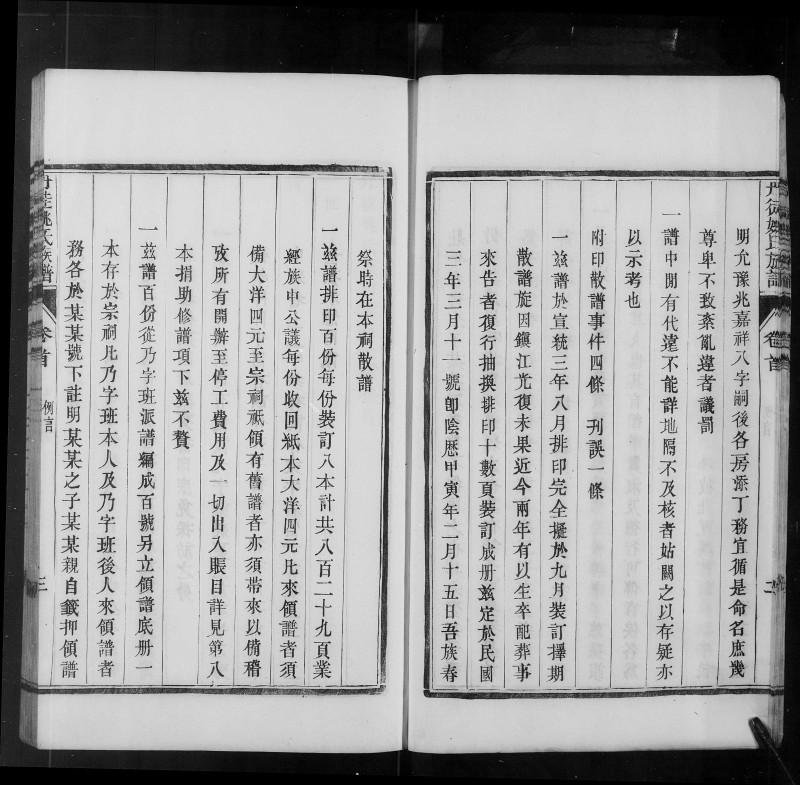 丹徒姚氏族譜
卷首
二
明允豫兆嘉祥八字嗣後各房添丁務宜循是命名庶幾
尊卑不致紊亂違者議罰
一譜中閒有代遠不能詳地隔不及核者姑闕之以存疑亦
以示考也
附印散譜事件四條 刊誤一條
一茲譜於宣統三年八月排印完全擬於九月裝訂擇期
散譜旋因鎭江光復未果近今兩年有以生卒配葬事
來告者復行抽換排印十數頁裝訂成册茲定於民國
三年三月十一號卽陰歷甲寅年二月十五日吾族春
祭時在本祠散譜
一茲譜排印百份每份裝訂八本計共八百二十九頁業
經族中公議每份收回紙本大洋四元凡來領譜者須
備大洋四元至宗祠祇領有舊譜者亦須帶來以備稽
攷所有開辦至停工費用及一切出入賬目詳見第八
本捐助修譜項下茲不贅
一茲譜百份從乃字班派譜編成百號另立領譜底册一
本存於宗祠凡乃字班本人及乃字班後人來領譜者
務各於某某號下註明某某之子某某親自籤押領譜
姚氏族譜
卷首
例言
三